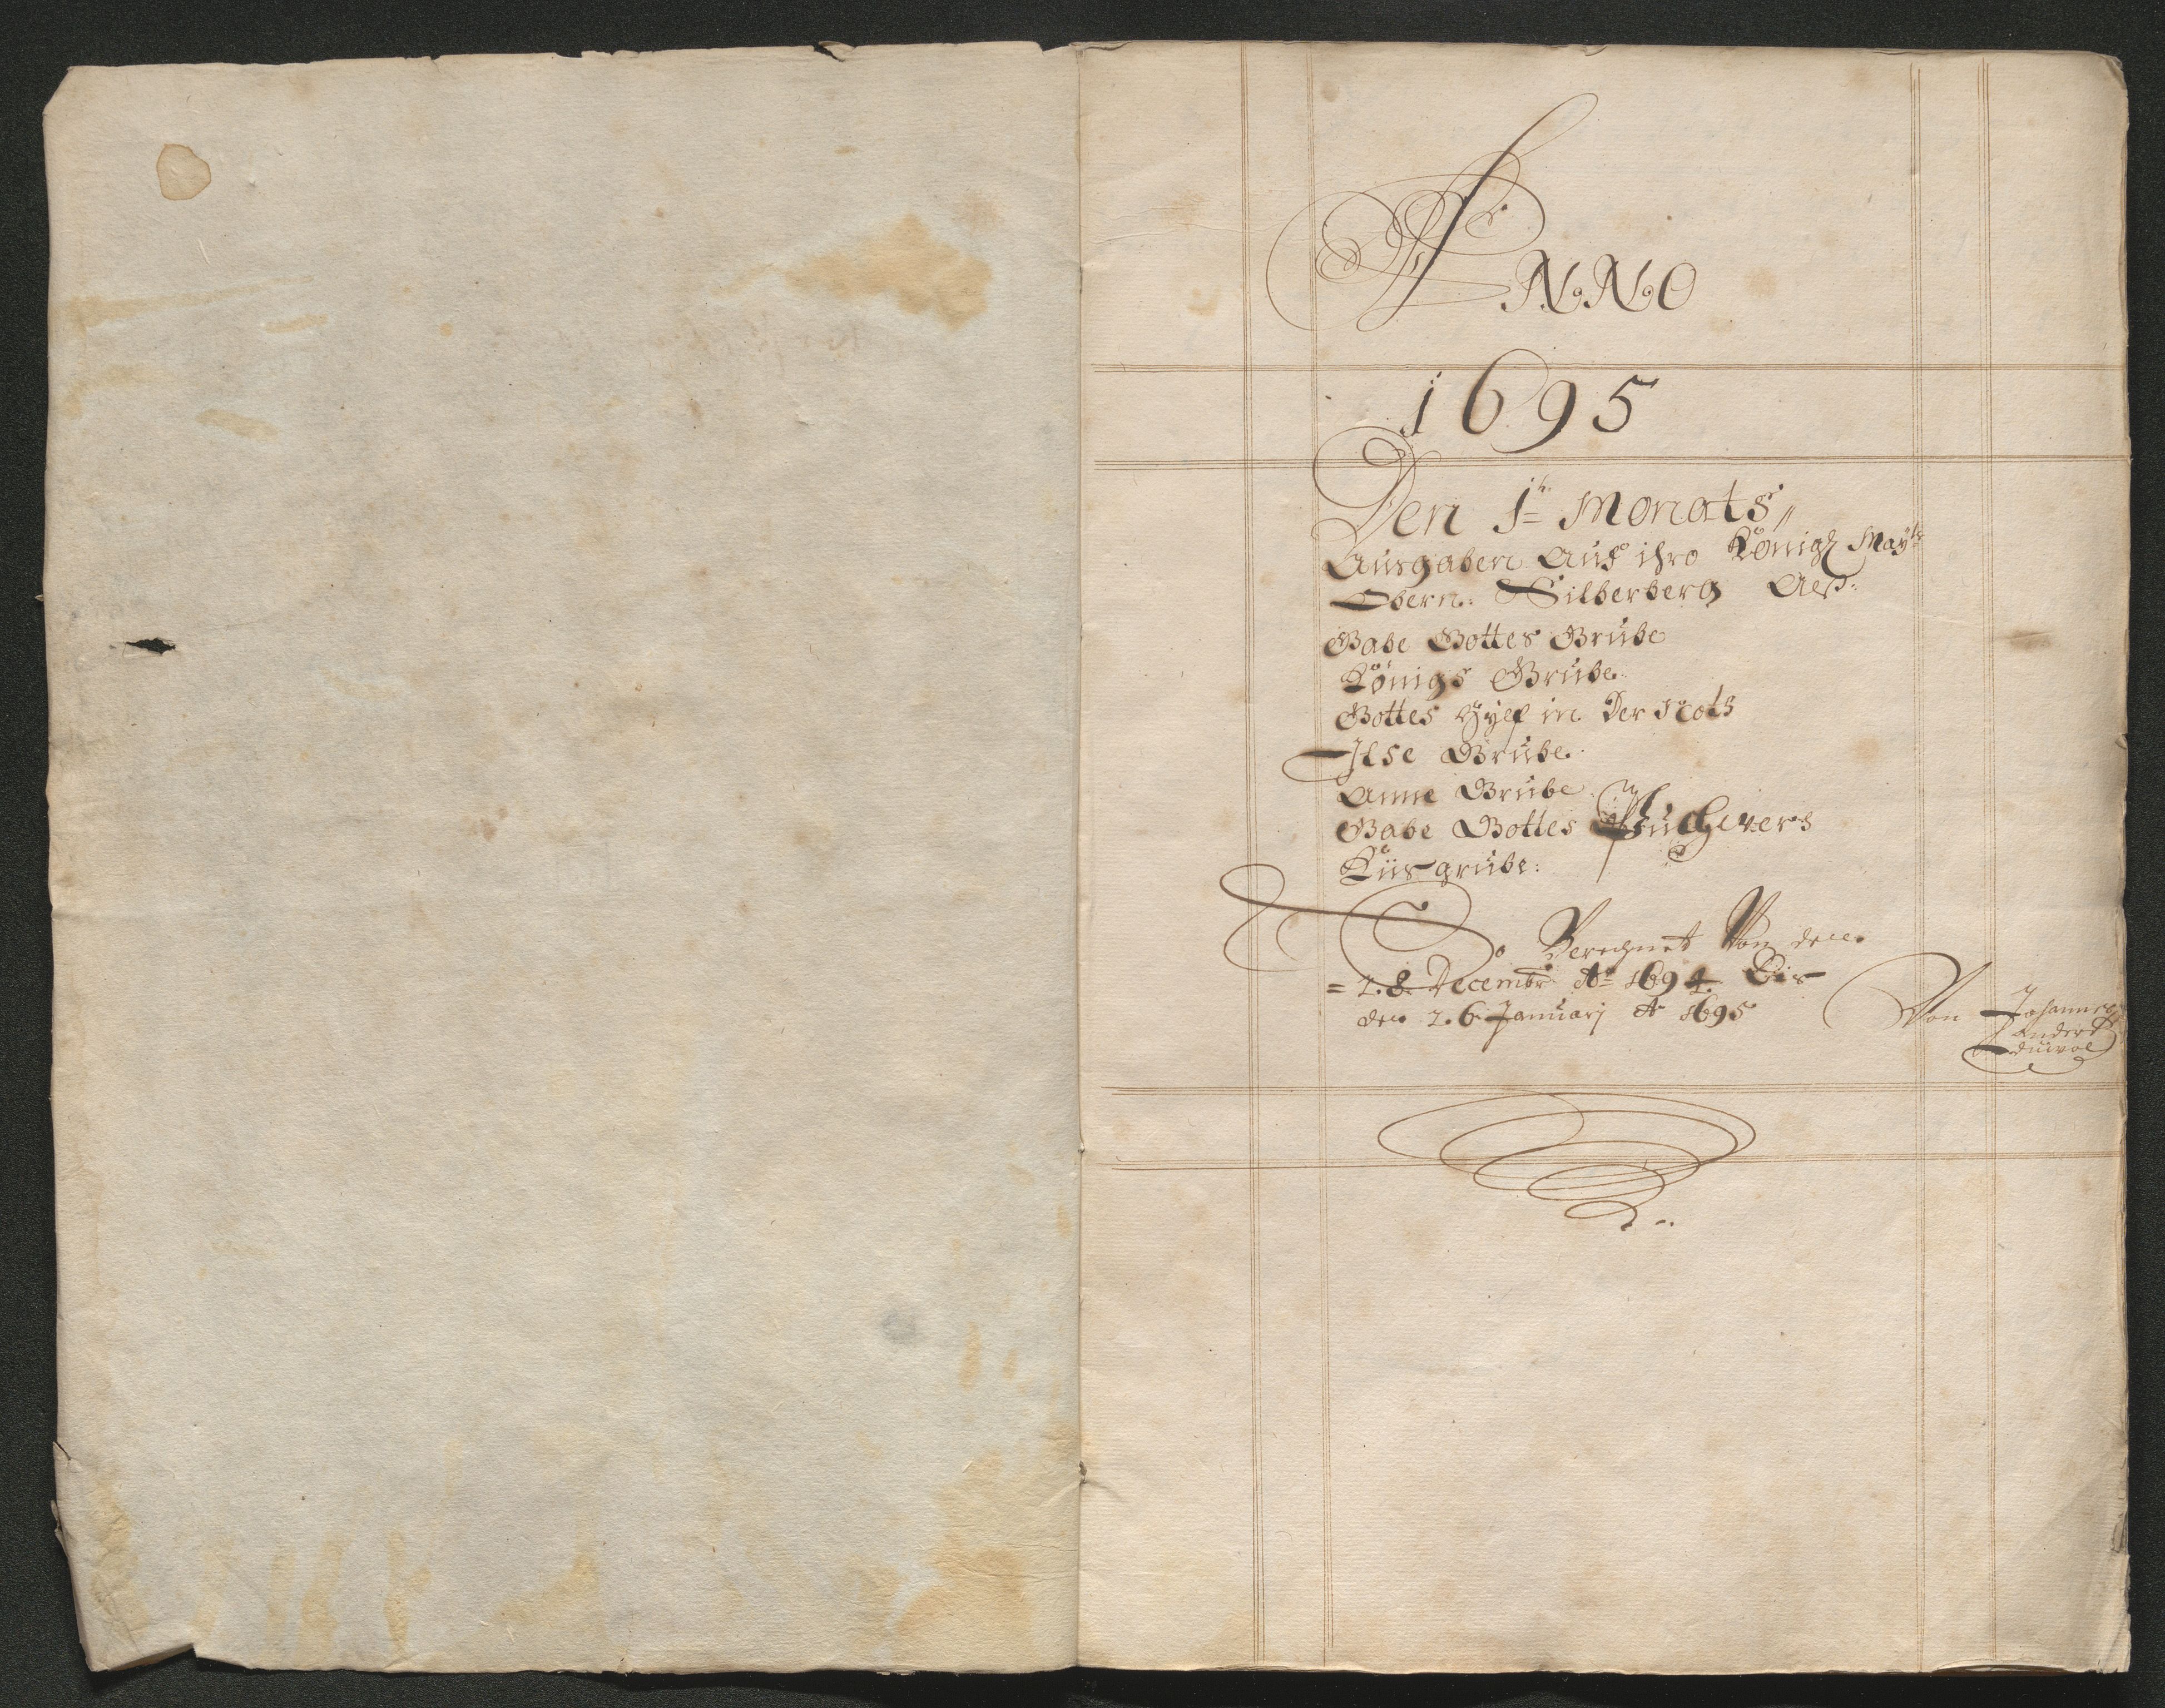 ANNO
1695
Den 1t Monats
Ausgaben Auf ihro Königl Mayts
Obern: Silberberg Als:
Gabe Gottes Grube
Königs Grube
Gottes Hylf in Der Noth
Ilse Grube
Anne Grube
Gabe Gottes
Kiisgrube:
So Berechnet Von den
= 28 Decembr Ao 1694 Bis
den 26 Januarj A 1695
Von Johannes
Anders